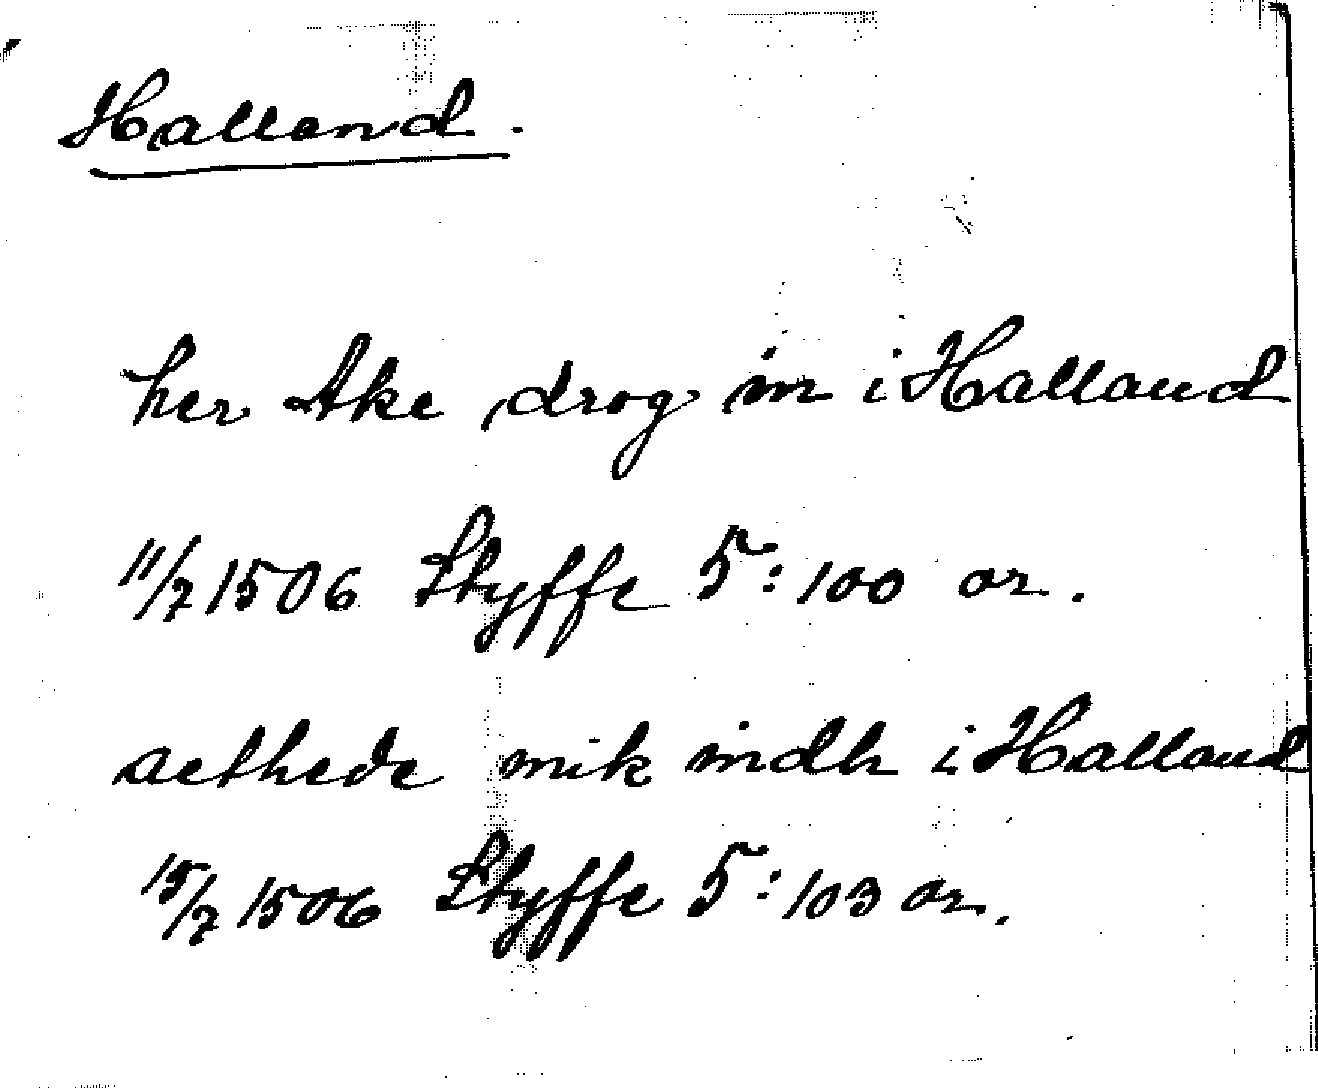 Halland.
her Ake drog in i Halland
11/7 1506 Styffe 5:100 or.
aethede mik indh i Halland
15/7 1506 Styffe 5:103 or.